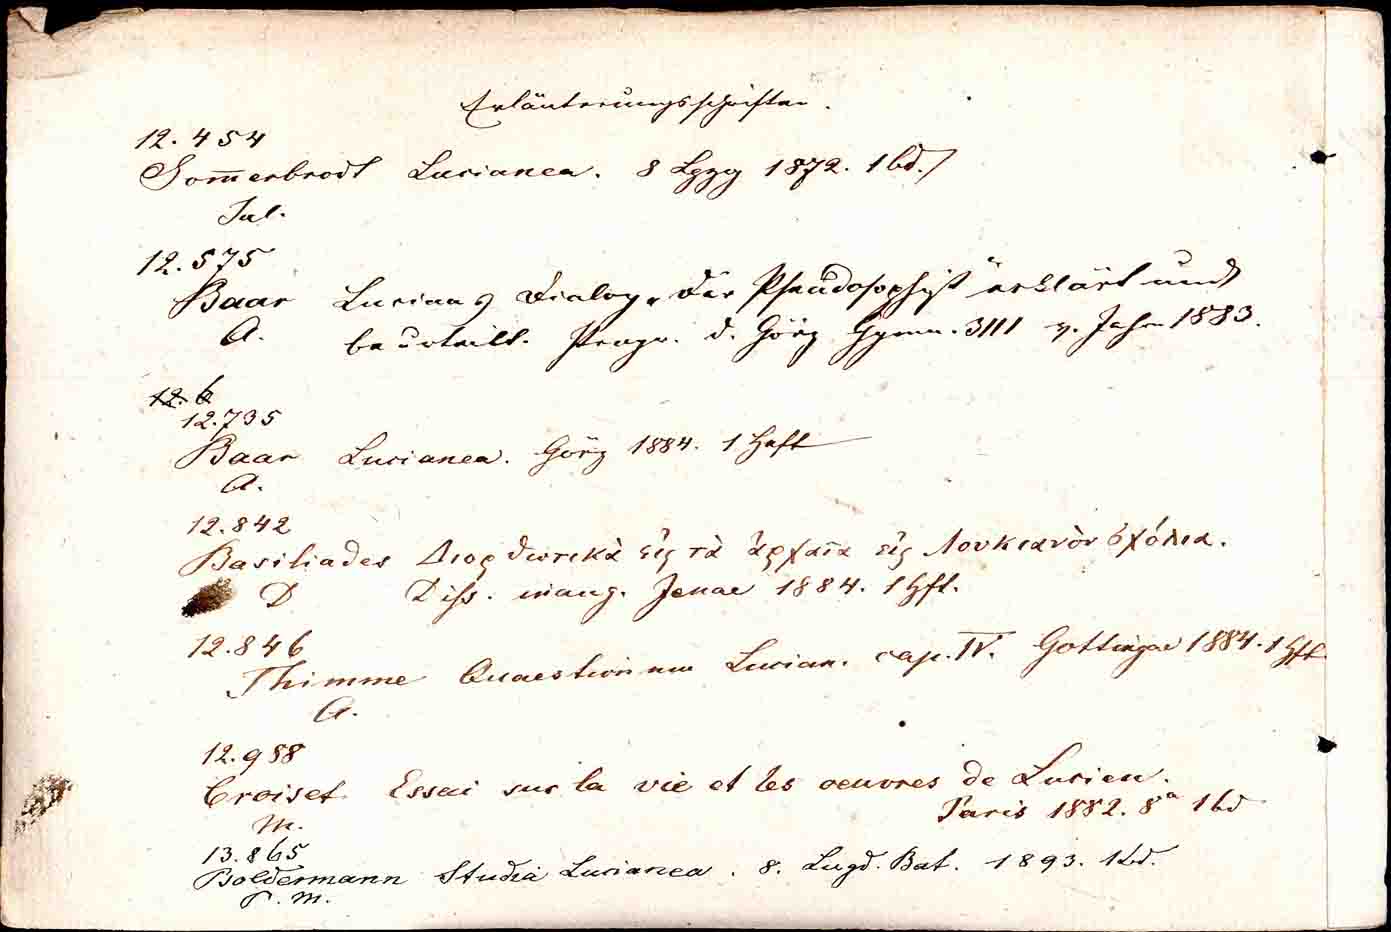 Erläuterungsschriften.
12.454
Som̅erbrodt Lucianea. 8 Lpzg 1872. 1 bd.
Jul.
12.575
Baar Lucians Dialog „Der Pseudosophist“ erklärt und
A. beurteilt. Progr. d. Görz. Gymn. v. Jahr 1883.
12.6
12.735
Baar Lucianea. Görz 1884. 1 Heft
A.
12.842
Basiliades Διορθωτικὰ εἰς τὰ ἀρχαῖα εἰς Λουκιανὸν σχόλια.
D Diss. inaug. Jenae 1884. 1 Hft.
12.846
Thimme Quaestionum Lucian. cap. IV. Gottingae 1884. 1 Hft
A.
12.988
Croiset Essai sur la vie et les oeuvres de Lucien.
M. Paris 1882. 8° 1 bd
13.865
Boldermann Studia Lucianea. 8. Lugd. Bat. 1893. 1 bd.
P. M.